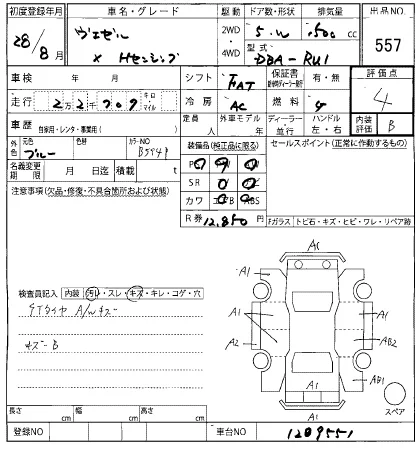 初度登録年月 車名・グレード 駆動 ドア数・形状 排気量 出品NO
28/8月 ヴェゼル 2WD・4WD 5.W 1500cc 557
X Hセンシング 型式 DBA-RU1
車検 年 月 シフト FAT 保証書 有・無 評価点
走行 2万2千709 キロ マイル 冷房 AC 燃料 4
車歴 自家用・レンタ・事業用( ) 定員 人 外車モデル 年 ディーラー・並行 ハンドル 左・右 内装評価 B
外色 元色 ブルー 色替 カラーNO B594P 装備品(純正品に限る) セールスポイント(正常に作動するもの)
名義変更期限 月 日迄 積載 t
注意事項(欠品・修復・不具合箇所および状態) SR
カワ
R券 12,850円 Fガラス トビ石・キズ・ヒビ・ワレ・リペア跡
A1
A1
検査員記入 内装 汚レ・スレ・キズ・キレ・コゲ・穴
STタイヤ A/Wキズ A1 A1
キズ-B A2 AB2
A1 AB1
A1 スペア
長さ cm 幅 cm 高さ cm A1
登録NO 車台NO 1209551